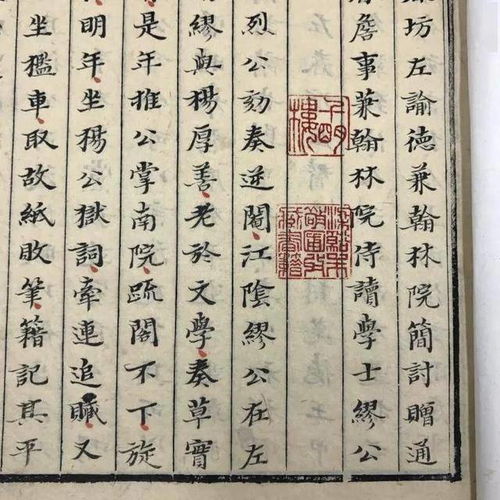 坊左諭德兼翰林院簡討贈通
詹事兼翰林院侍讀學士繆公
烈公劾奏逆閹江陰繆公在左
繆與楊厚善老於文學奏草實
是年推公掌南院疏閣不下旋
明年坐楊公獄詞牽連追贓又
坐檻車取故紙敗筆籍記其平